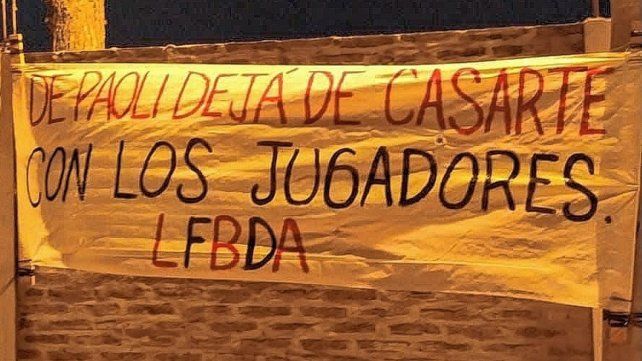 DE PAOLI DEJÁ DE CASARTE
CON LOS JUGADORES.
LFBDA